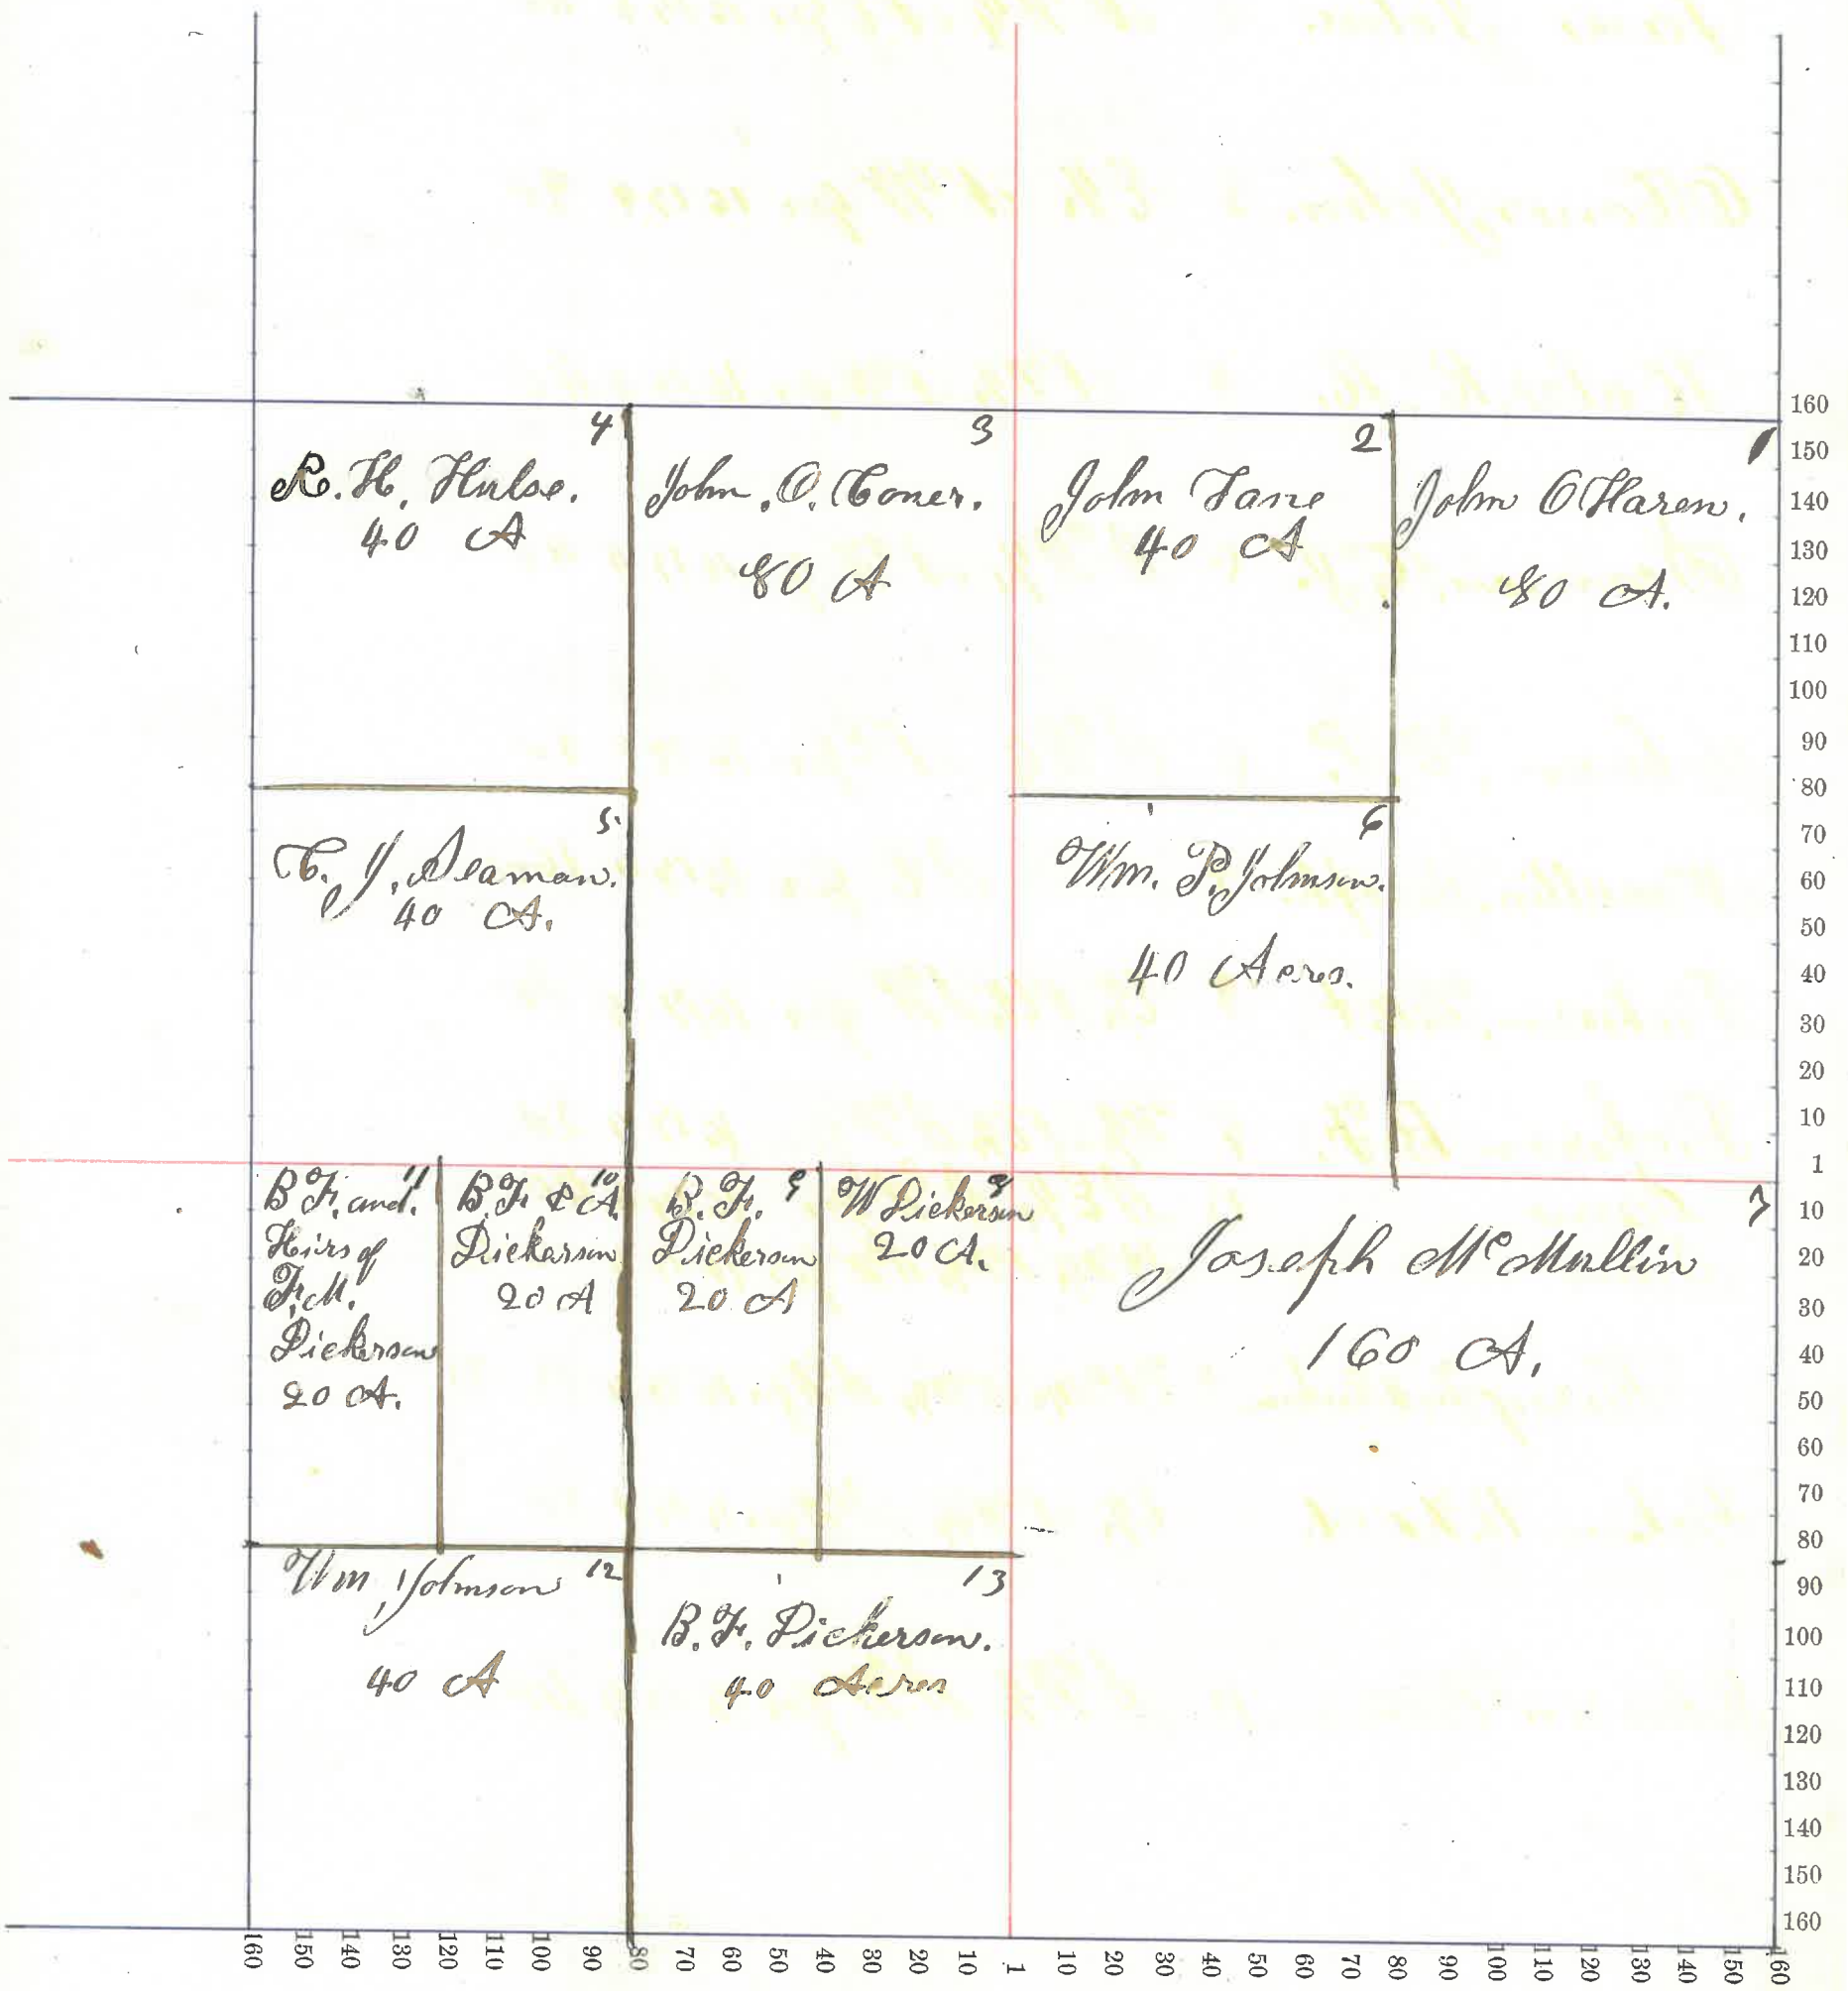 4
R. H. Hulse.
40 A
3
John. O. Coner.
80 A
2
John Lane
40 A
1
John O Haren.
80 A.
5
C. J. Seaman.
40 A.
6
Wm. P. Johnson.
40 Acres.
11
B F. and.
Heirs of
F. M.
Dickerson
20 A.
10
B. F. & A.
Dickerson
20 A
9
B. F.
Dickerson
20 A
W Dickerson
20 A.
7
Joseph Mc Mullin
160 A.
12
Wm Johnson
40 A
13
B. F. Dickerson.
40 Acres
160
150
140
130
120
110
100
90
80
70
60
50
40
30
20
10
1
10
20
30
40
50
60
70
80
90
100
110
120
130
140
150
160
160 150 140 130 120 110 100 90 80 70 60 50 40 30 20 10 1 10 20 30 40 50 60 70 80 90 100 110 120 130 140 150 160